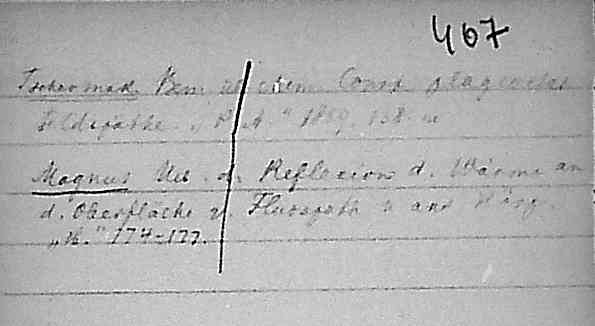 467
Tschermak. Bem üb chem Const plagioclas
Feldspathe. „P. A." 1869. 138.
Magnus Ueb. d. Reflexion d. Wärme an
d. Oberfläche v. Flussspath u and
„Ib." 174-177.